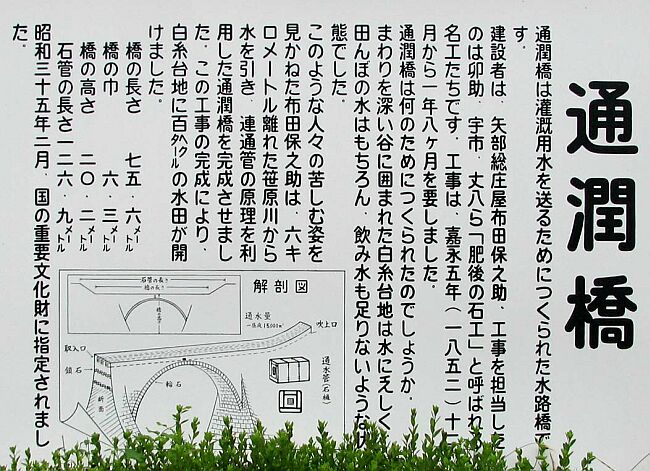 通潤橋
通潤橋は灌漑用水を送るためにつくられた水路橋で
す．
建設者は．矢部総庄屋布田保之助．工事を担当した
のは卯助．宇市．丈八ら「肥後の石工」と呼ばれ
名工たちです．工事は．嘉永五年(一八五二)十二
月から一年八ヶ月を要しました．
通潤橋は何のためにつくられたのでしょうか．
まわりを深い谷に囲まれた白糸台地は水にえしく
田んぼの水はもちろん．飲み水も足りないような状
態でした．
このような人々の苦しむ姿を
見かねた布田保之助は．六キ
ロメートル離れた笹原川から
水を引き．連通管の原理を利
用した通潤橋を完成させまし
た．この工事の完成により．
白糸台地に百ヘクタールの水田が開
けました．
橋の長さ 七五．六メートル
橋の巾 六．三メートル
橋の高さ 二〇．二メートル
石管の長さ一二六．九メートル
昭和三十五年二月．国の重要文化財に指定されまし
た．
解剖図
石管の長さ
橋の長さ
橋の高さ
通水量
一昼夜15,000m³
吹上口
取入口
鎖石
輪石
断面
通水管(石樋)